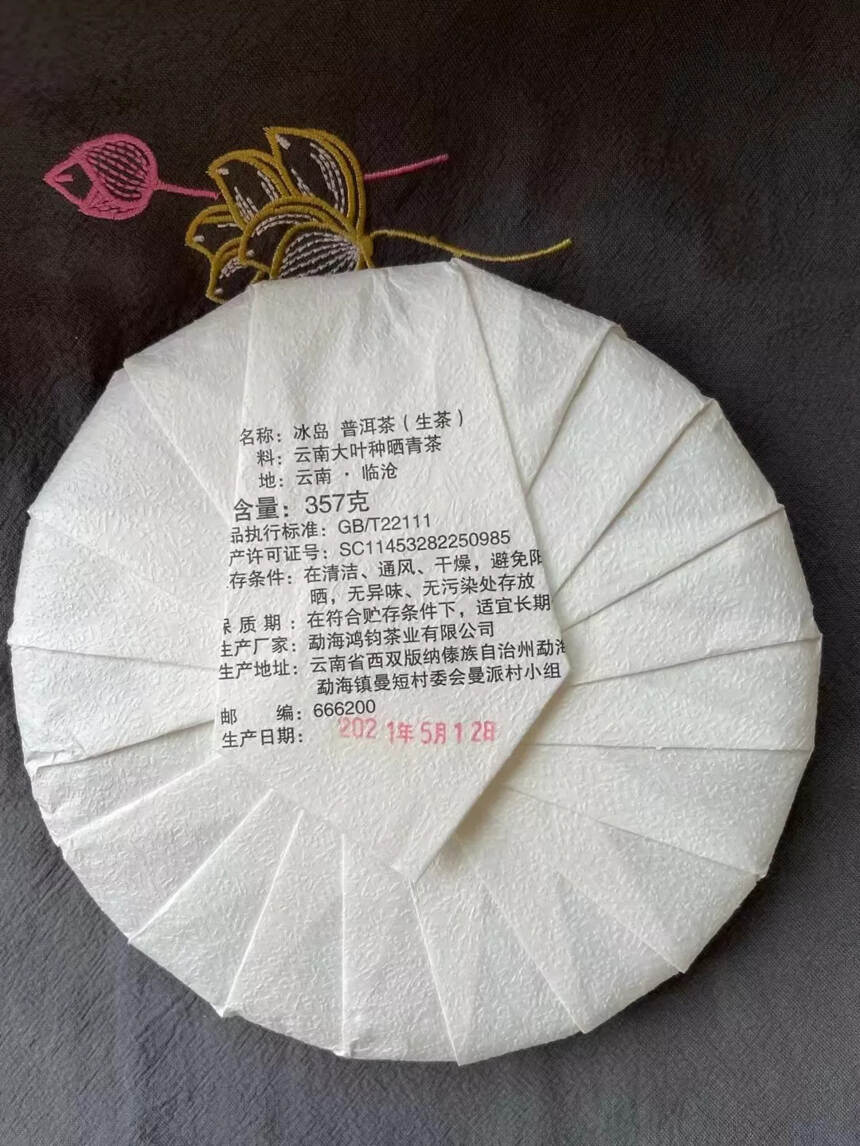 名称：冰岛 普洱茶（生茶）
料：云南大叶种晒青茶
地：云南·临沧
含量：357克
品执行标准：GB/T22111
产许可证号：SC11453282250985
存条件：在清洁、通风、干燥，避免阳
晒，无异味、无污染处存放
保质期：在符合贮存条件下，适宜长期
生产厂家：勐海鸿钧茶业有限公司
生产地址：云南省西双版纳傣族自治州勐海
勐海镇曼短村委会曼派村小组
邮 编：666200
生产日期：2021年5月12日